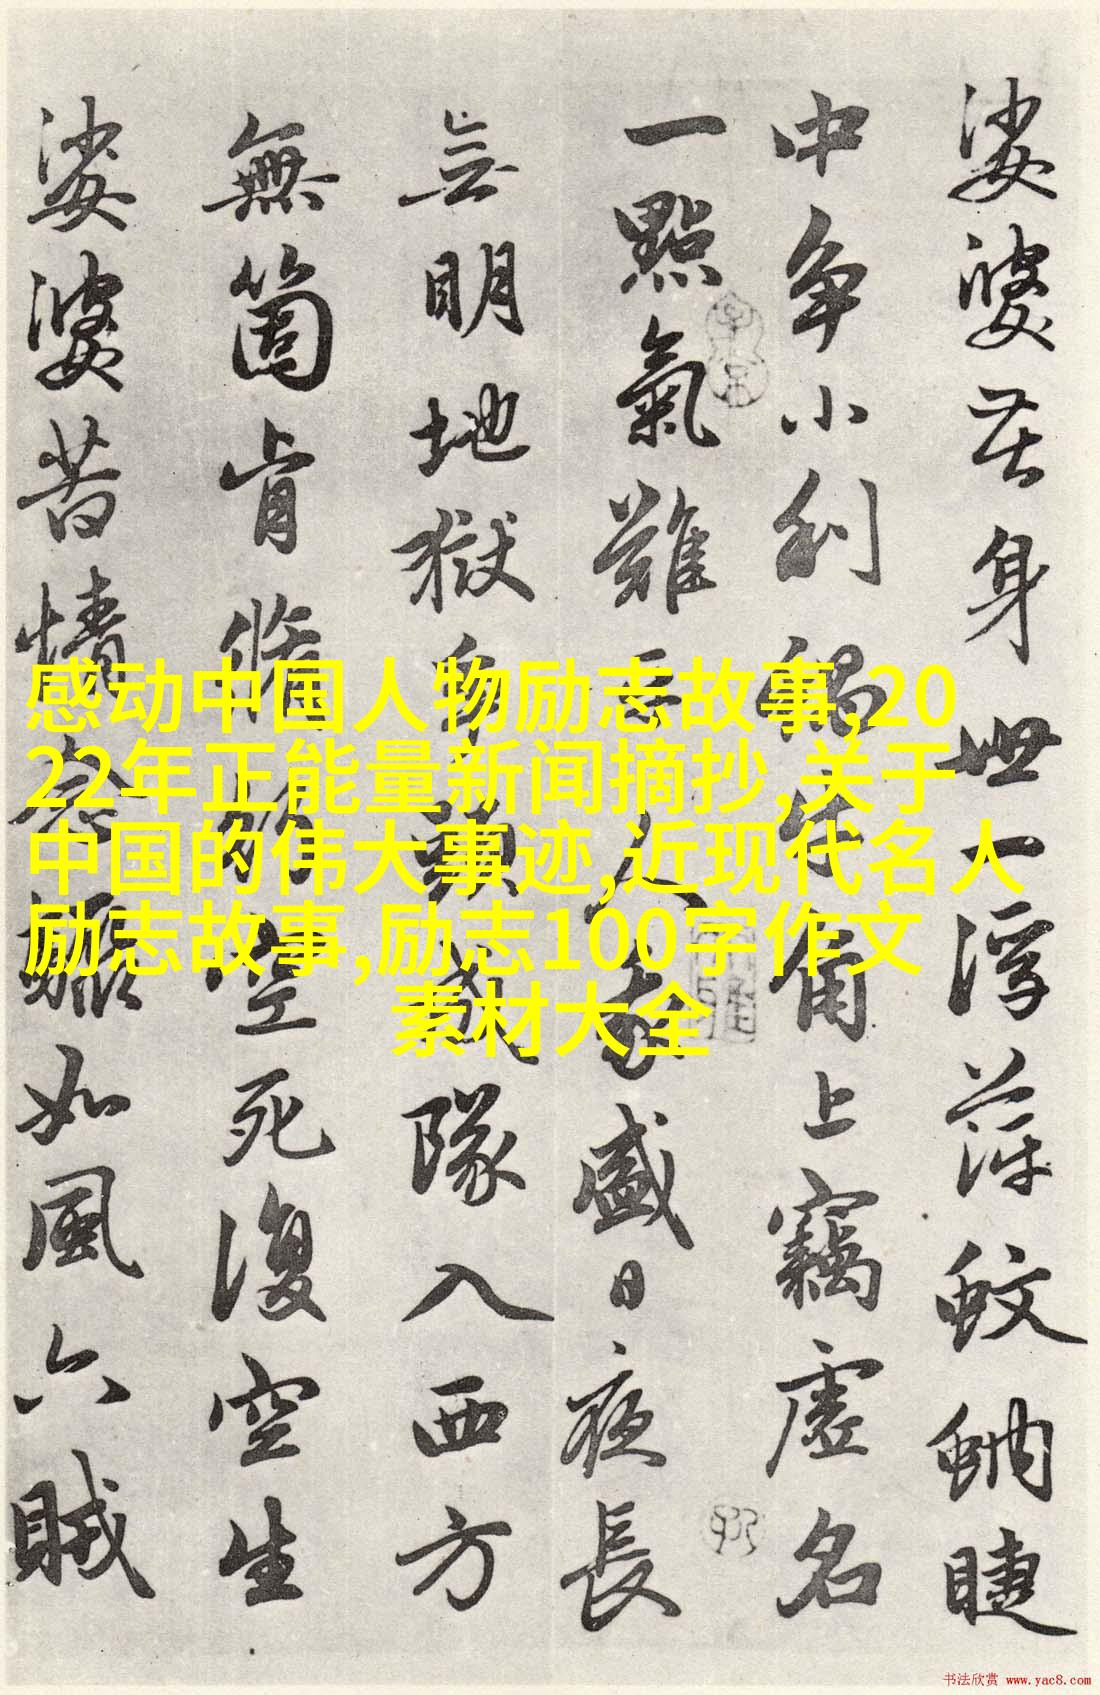 娑婆苦身世一浮萍蚊蚋睫
中争小利蝸牛角上竊虛名
一點氣難平人我盛日夜長
无明地獄頭成隊入西方
無箇肯脩行空死復空生
娑婆苦情念驟如風六賊
感动中国人物励志故事,20
22年正能量新闻摘抄,关于
中国的伟大事迹,近现代名人
励志故事,励志100字作文
素材大全
书法欣赏 www.yac8.com